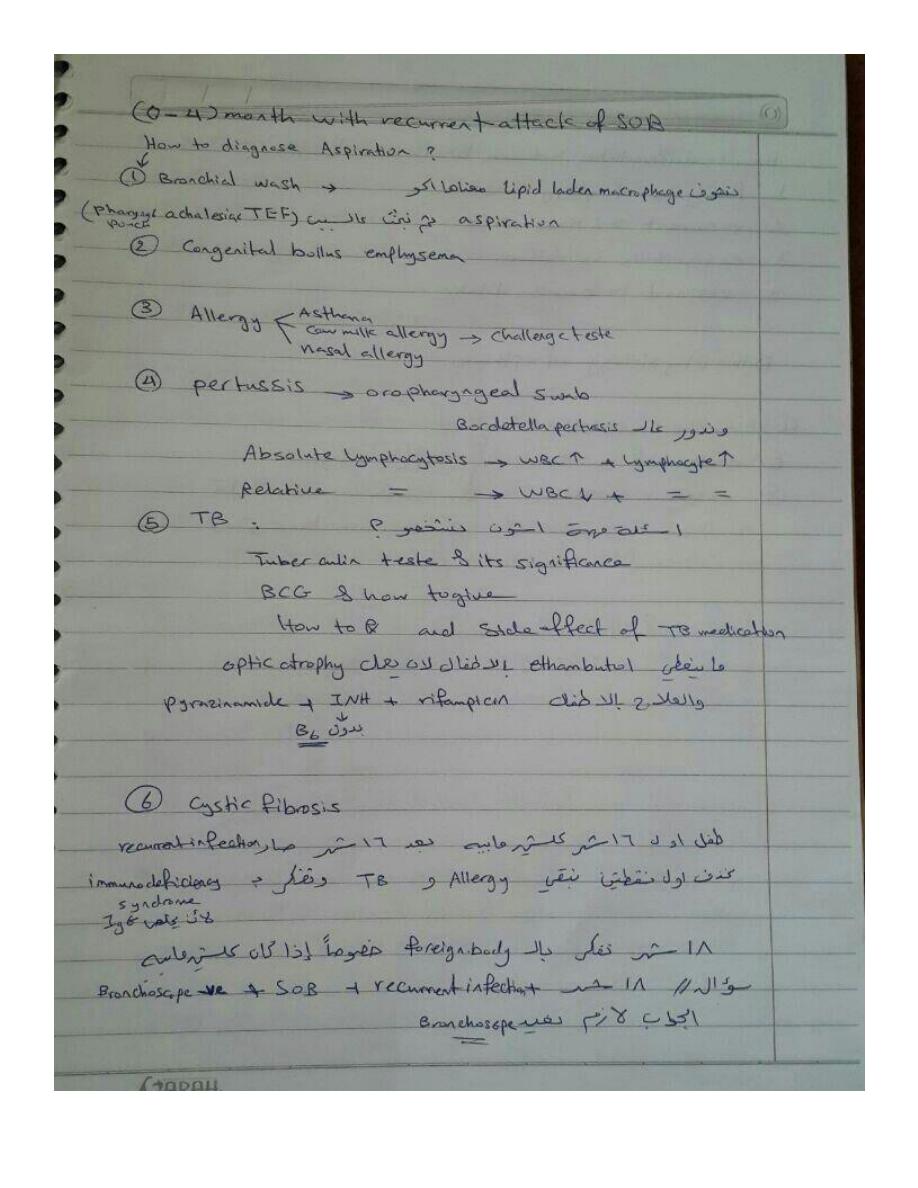 (0-4) month with recurrent attack of SOB
How to diagnose Aspiration ?
① Bronchial wash → دنشوف lipid laden macrophage معناها اكو
aspiration ندور عالسبب (pharyngeal achalasia TEF)
② Congenital bullus emphysema
③ Allergy Asthma
Cow milk allergy → challenge teste
nasal allergy
④ pertussis → oropharyngeal swab
وندور عالـ Bordetella pertussis
Absolute lymphocytosis → WBC ↑ + lymphocyte ↑
Relative = → WBC ↓ + = =
⑤ TB : اسئلة مهمة اشلون دنشخصو ؟
Tuberculin teste & its significance
BCG & how to give
How to R and Side effect of TB medication
ما ينطي ethambutol بالاطفال لان يعمل optic atrophy
والعلاج بالاطفال pyrazinamide + INH + rifampicin
بدون B6
⑥ Cystic fibrosis
طفل اول ١٦ شهر كلشي مابيه بعد ١٦ شهر صار recurrent infection
نحذف اول نقطتين نبقي Allergy و TB ونفكر بـ immunodeficiency
syndrome
لأن يخلص IgG
١٨ شهر نفكر بالـ foreign body خصوصاً إذا كان كلشي مابيه
سؤال // ١٨ شهر + recurrent infection + SOB + Bronchoscope -ve
الجواب لازم نعيد Bronchoscope